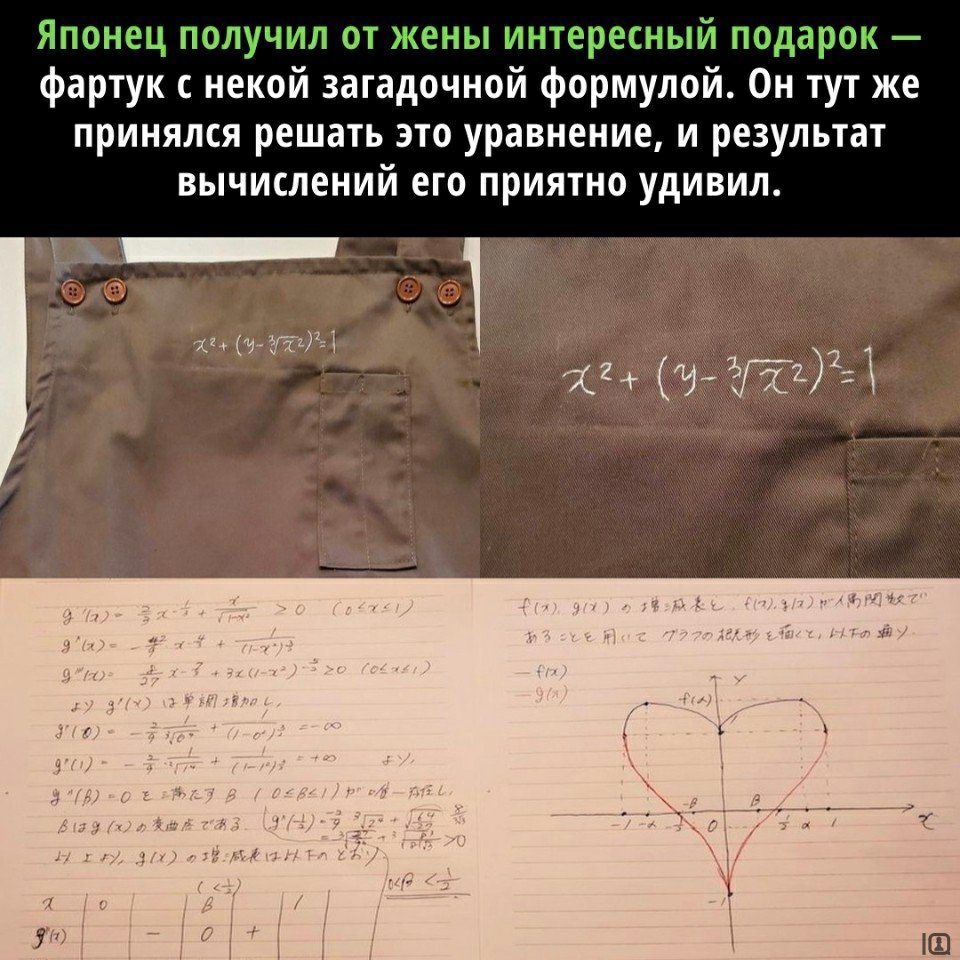 Японец получил от жены интересный подарок —
фартук с некой загадочной формулой. Он тут же
принялся решать это уравнение, и результат
вычислений его приятно удивил.
x²+(y-∛x²)²=1
x²+(y-∛x²)²=1
g'(x)= 2/3 x^-1/3 + x/√1-x² > 0 (0≤x≤1)
g''(x)= -2/9 x^-4/3 + 1/(1-x²)^3/2
g'''(x)= 8/27 x^-7/3 + 3x(1-x²)^-5/2 ≥0 (0≤x≤1)
より g''(x) は単調増加し、
g''(0)= -2/9 1/∛0⁴ + 1/(1-0²)^3/2 = -∞
g''(1)= -2/9 1/∛1⁴ + 1/(1-1²)^3/2 = +∞ より、
g''(β)=0 を満たす β (0≤β≤1) が唯一存在し、
βはg(x)の変曲点である。
以上より、g(x) の増減表は以下のとおり
0<β<1/2
(<1/2)
x 0 β 1
g''(x) - 0 +
f(x), g(x) の増減表と、f(x), g(x)が偶関数で
あることを用いて グラフの概形を描くと、以下の通り
-f(x)
-g(x)
y
f(α)
-1 -α -1/2 -β 0 β 1/2 α 1 x
-1